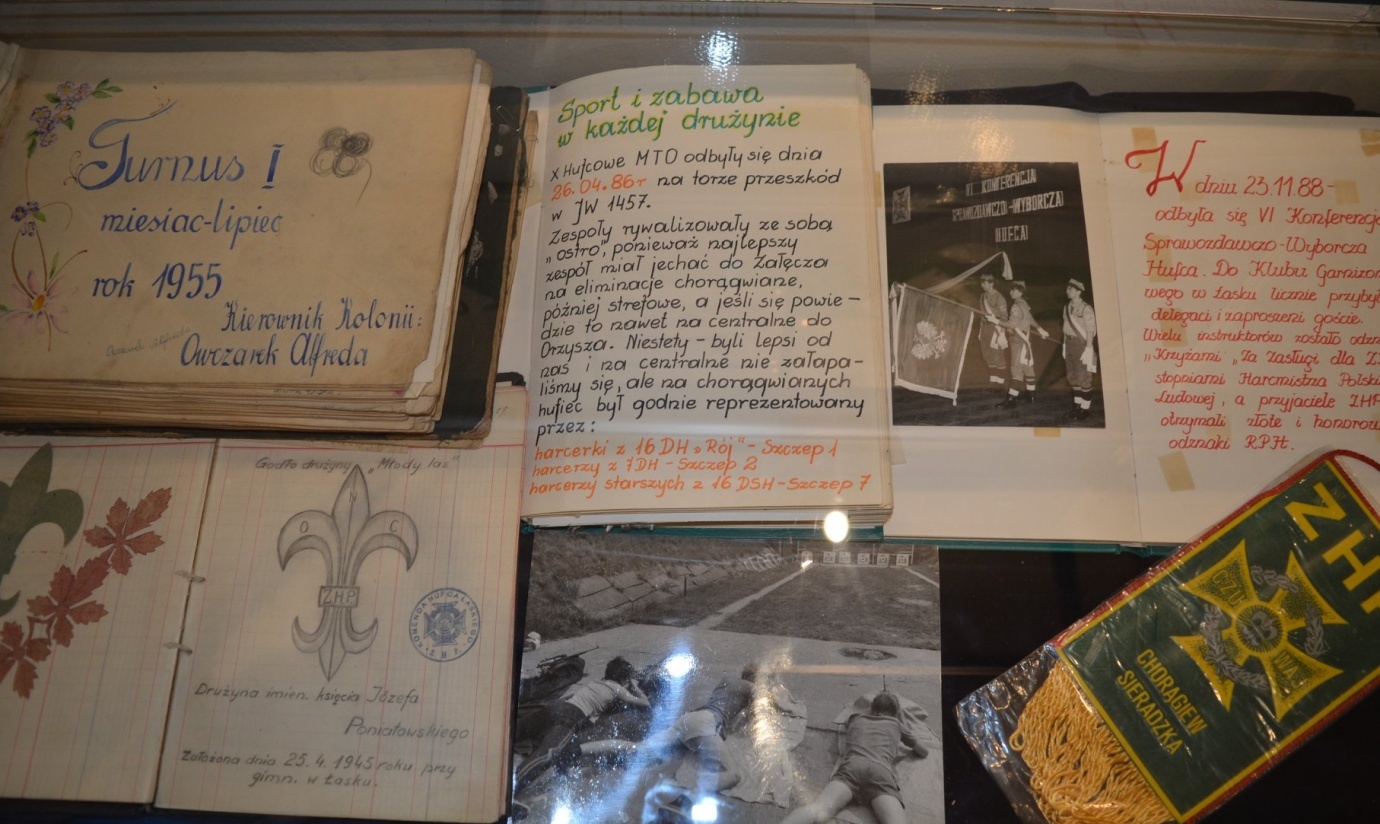 Turnus I
miesiac-lipiec
rok 1955
Kierownik Kolonii:
Owczarek Alfreda
Sport i zabawa
w każdej drużynie
X Hufcowe MTO odbyły się dnia
26.04.86r na torze przeszkód
w JW 1457.
Zespoły rywalizowały ze sobą
„ostro”, ponieważ najlepszy
zespół miał jechać do Załęcza
na eliminacje chorągwiane,
później strefowe, a jeśli się powie-
dzie to nawet na centralne do
Orzysza. Niestety - byli lepsi od
nas i na centralne nie załapa-
liśmy się, ale na chorągwianych
hufiec był godnie reprezentowany
przez:
harcerki z 16 DH „Rój” - Szczep 1
harcerzy z 7DH - Szczep 2
harcerzy starszych z 16 DSH - Szczep 7
VI KONFERENCJA
SPRAWOZDAWCZO-WYBORCZA
HUFCA
W dniu 23.11.88-
odbyła się VI Konferencja
Sprawozdawczo-Wyborcza
Hufca. Do Klubu Garnizono
wego w Łasku licznie przybyl
delegaci i zaproszeni goście.
Wielu instruktorów zostało odzn
„Krzyżami „Za Zasługi dla Z
stopniami Harcmistrza Polski
Ludowej, a przyjaciele ZHP
otrzymali złote i honorow
odznaki R.P.H.
Godło drużyny „Młody las”
O N C
ZHP
KOMENDA HUFCA ŁASKIEGO
Z.H.P.
Drużyna imien. księcia Józefa
Poniatowskiego
Założona dnia 25.4.1945 roku przy
gimn. w Łasku.
ZHP
CZU WAJ
CHORĄGIEW
SIERADZKA